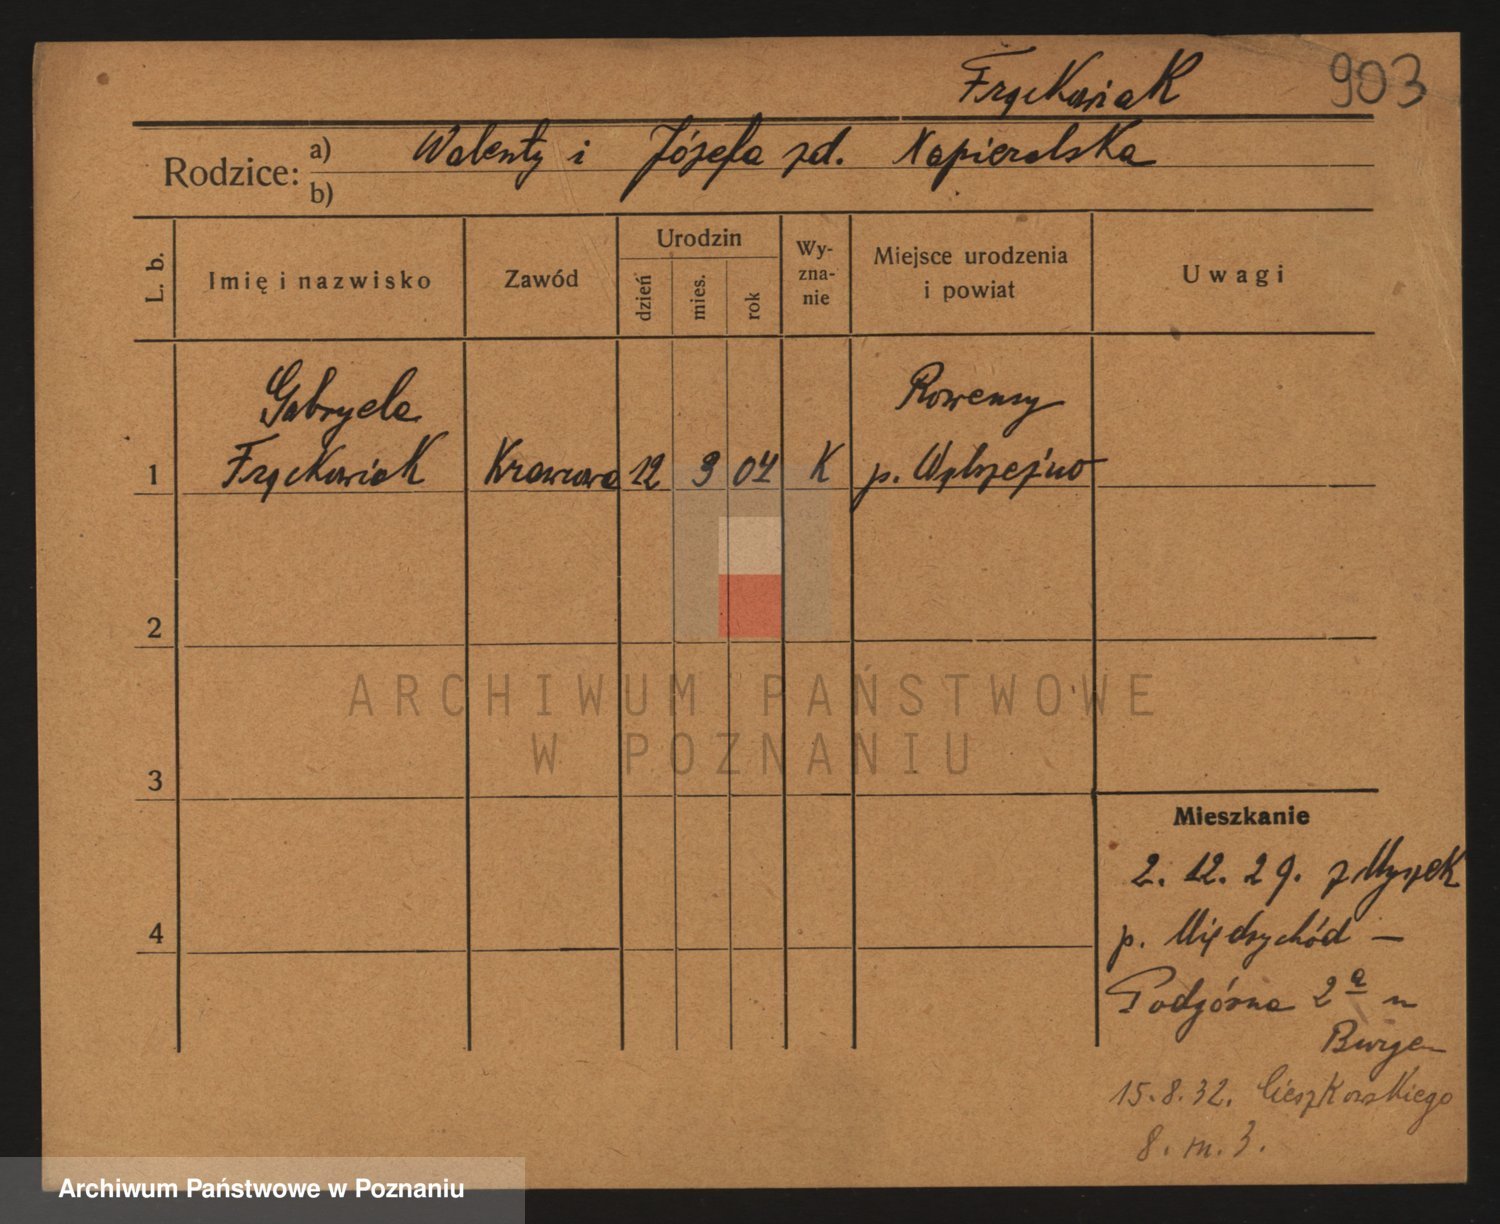 Frąckowiak 903
Rodzice: a) Walenty i Józefa zd. Napieralska
b)
L. b.
Imię i nazwisko
Zawód
Urodzin
dzień
mies.
rok
Wy-
zna-
nie
Miejsce urodzenia
i powiat
Uwagi
Gabryela
Frąckowiak
1
Krawcowa
12
9
04
K
p.
2
3
4
Mieszkanie
2. 12. 29. z
p. Międzychód —
Podgórna 2a u
15.8.32. Cieszkowskiego
8. m. 3.
ARCHIWUM PAŃSTWOWE
W POZNANIU
Archiwum Państwowe w Poznaniu